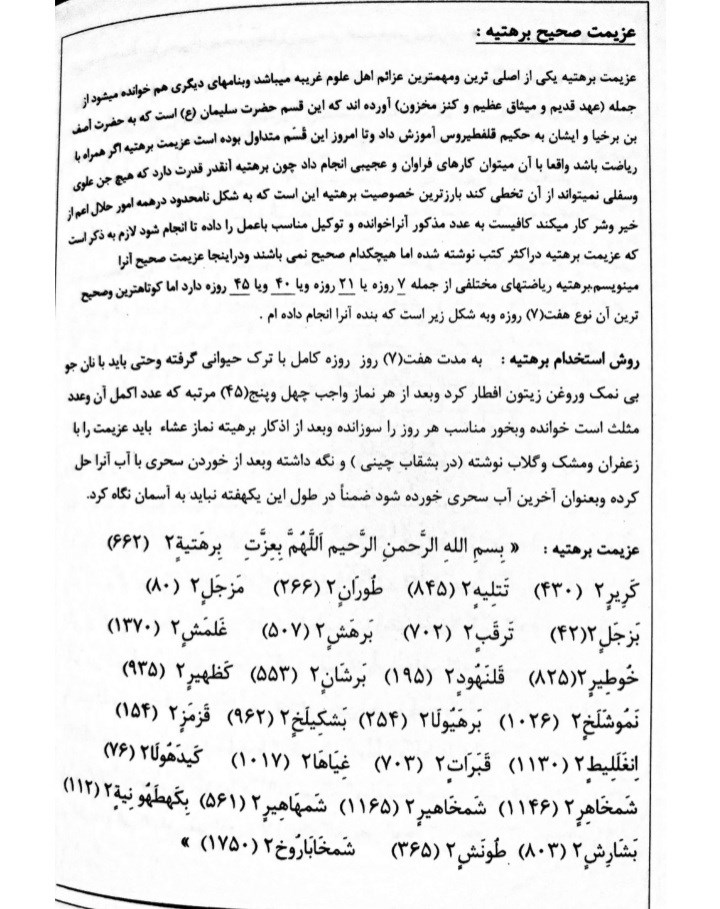 عزیمت صحیح برهتیه :
عزیمت برهتیه یکی از اصلی ترین ومهمترین عزائم اهل علوم غریبه میباشد وبنامهای دیگری هم خوانده میشود از
جمله (عهد قدیم و میثاق عظیم و کنز مخزون) آورده اند که این قسم حضرت سلیمان (ع) است که به حضرت آصف
بن برخیا و ایشان به حکیم قلفطیروس آموزش داد وتا امروز این قَسَم متداول بوده است عزیمت برهتیه اگر همراه با
ریاضت باشد واقعا با آن میتوان کارهای فراوان و عجیبی انجام داد چون برهتیه آنقدر قدرت دارد که هیچ جن علوی
وسفلی نمیتواند از آن تخطی کند بارزترین خصوصیت برهتیه این است که به شکل نامحدود درهمه امور حلال اعم از
خیر وشر کار میکند کافیست به عدد مذکور آنراخوانده و توکیل مناسب باعمل را داده تا انجام شود لازم به ذکر است
که عزیمت برهتیه دراکثر کتب نوشته شده اما هیچکدام صحیح نمی باشند ودراینجا عزیمت صحیح آنرا
مینویسم.برهتیه ریاضتهای مختلفی از جمله ۷ روزه یا ۲۱ روزه ویا ۴۰ ویا ۴۵ روزه دارد اما کوتاهترین وصحیح
ترین آن نوع هفت(۷) روزه وبه شکل زیر است که بنده آنرا انجام داده ام .
روش استخدام برهتیه : به مدت هفت(۷) روز روزه کامل با ترک حیوانی گرفته وحتی باید با نان جو
بی نمک وروغن زیتون افطار کرد وبعد از هر نماز واجب چهل وپنج(۴۵) مرتبه که عدد اکمل آن وعدد
مثلث است خوانده وبخور مناسب هر روز را سوزانده وبعد از اذکار برهیته نماز عشاء باید عزیمت را با
زعفران ومشک وگلاب نوشته (در بشقاب چینی ) و نگه داشته وبعد از خوردن سحری با آب آنرا حل
کرده وبعنوان آخرین آب سحری خورده شود ضمناً در طول این یکهفته نباید به آسمان نگاه کرد.
عزیمت برهتیه : « بِسمِ اللهِ الرَّحمنِ الرَّحیم اَللَّهُمَّ بِعِزَّتِ بِرهَتیةٍ۲ (۶۶۲)
کَریرٍ۲ (۴۳۰) تَتلِیهٍ۲ (۸۴۵) طُورَانٍ۲ (۲۶۶) مَزجَلٍ۲ (۸۰)
بَزجَلٍ۲(۴۲) تَرقَبٍ۲ (۷۰۲) بَرهَشٍ۲ (۵۰۷) غَلمَشٍ۲ (۱۳۷۰)
خُوطیرٍ۲(۸۲۵) قَلنَهُودٍ۲ (۱۹۵) بَرشَانٍ۲ (۵۵۳) کَظهیرٍ۲ (۹۳۵)
نَمُوشَلَخٍ۲ (۱۰۲۶) بَرهَیُولَا۲ (۲۵۴) بَشکِیلَخٍ۲ (۹۶۲) قَزمَزٍ۲ (۱۵۴)
اِنغَلَلیطٍ۲ (۱۱۳۰) قَبَرَاتٍ۲ (۷۰۳) غِیَاهَا۲ (۱۰۱۷) کَیدَهُولَا۲ (۷۶)
شَمخَاهِرٍ۲ (۱۱۴۶) شَمخَاهیرٍ۲ (۱۱۶۵) شَمهَاهِیرٍ۲ (۵۶۱) بِکَهطَهُونِیةٍ۲ (۱۱۲)
بَشَارِشٍ۲ (۸۰۳) طُونَشٍ۲ (۳۶۵) شَمخَابَارُوخ۲ (۱۷۵۰) »